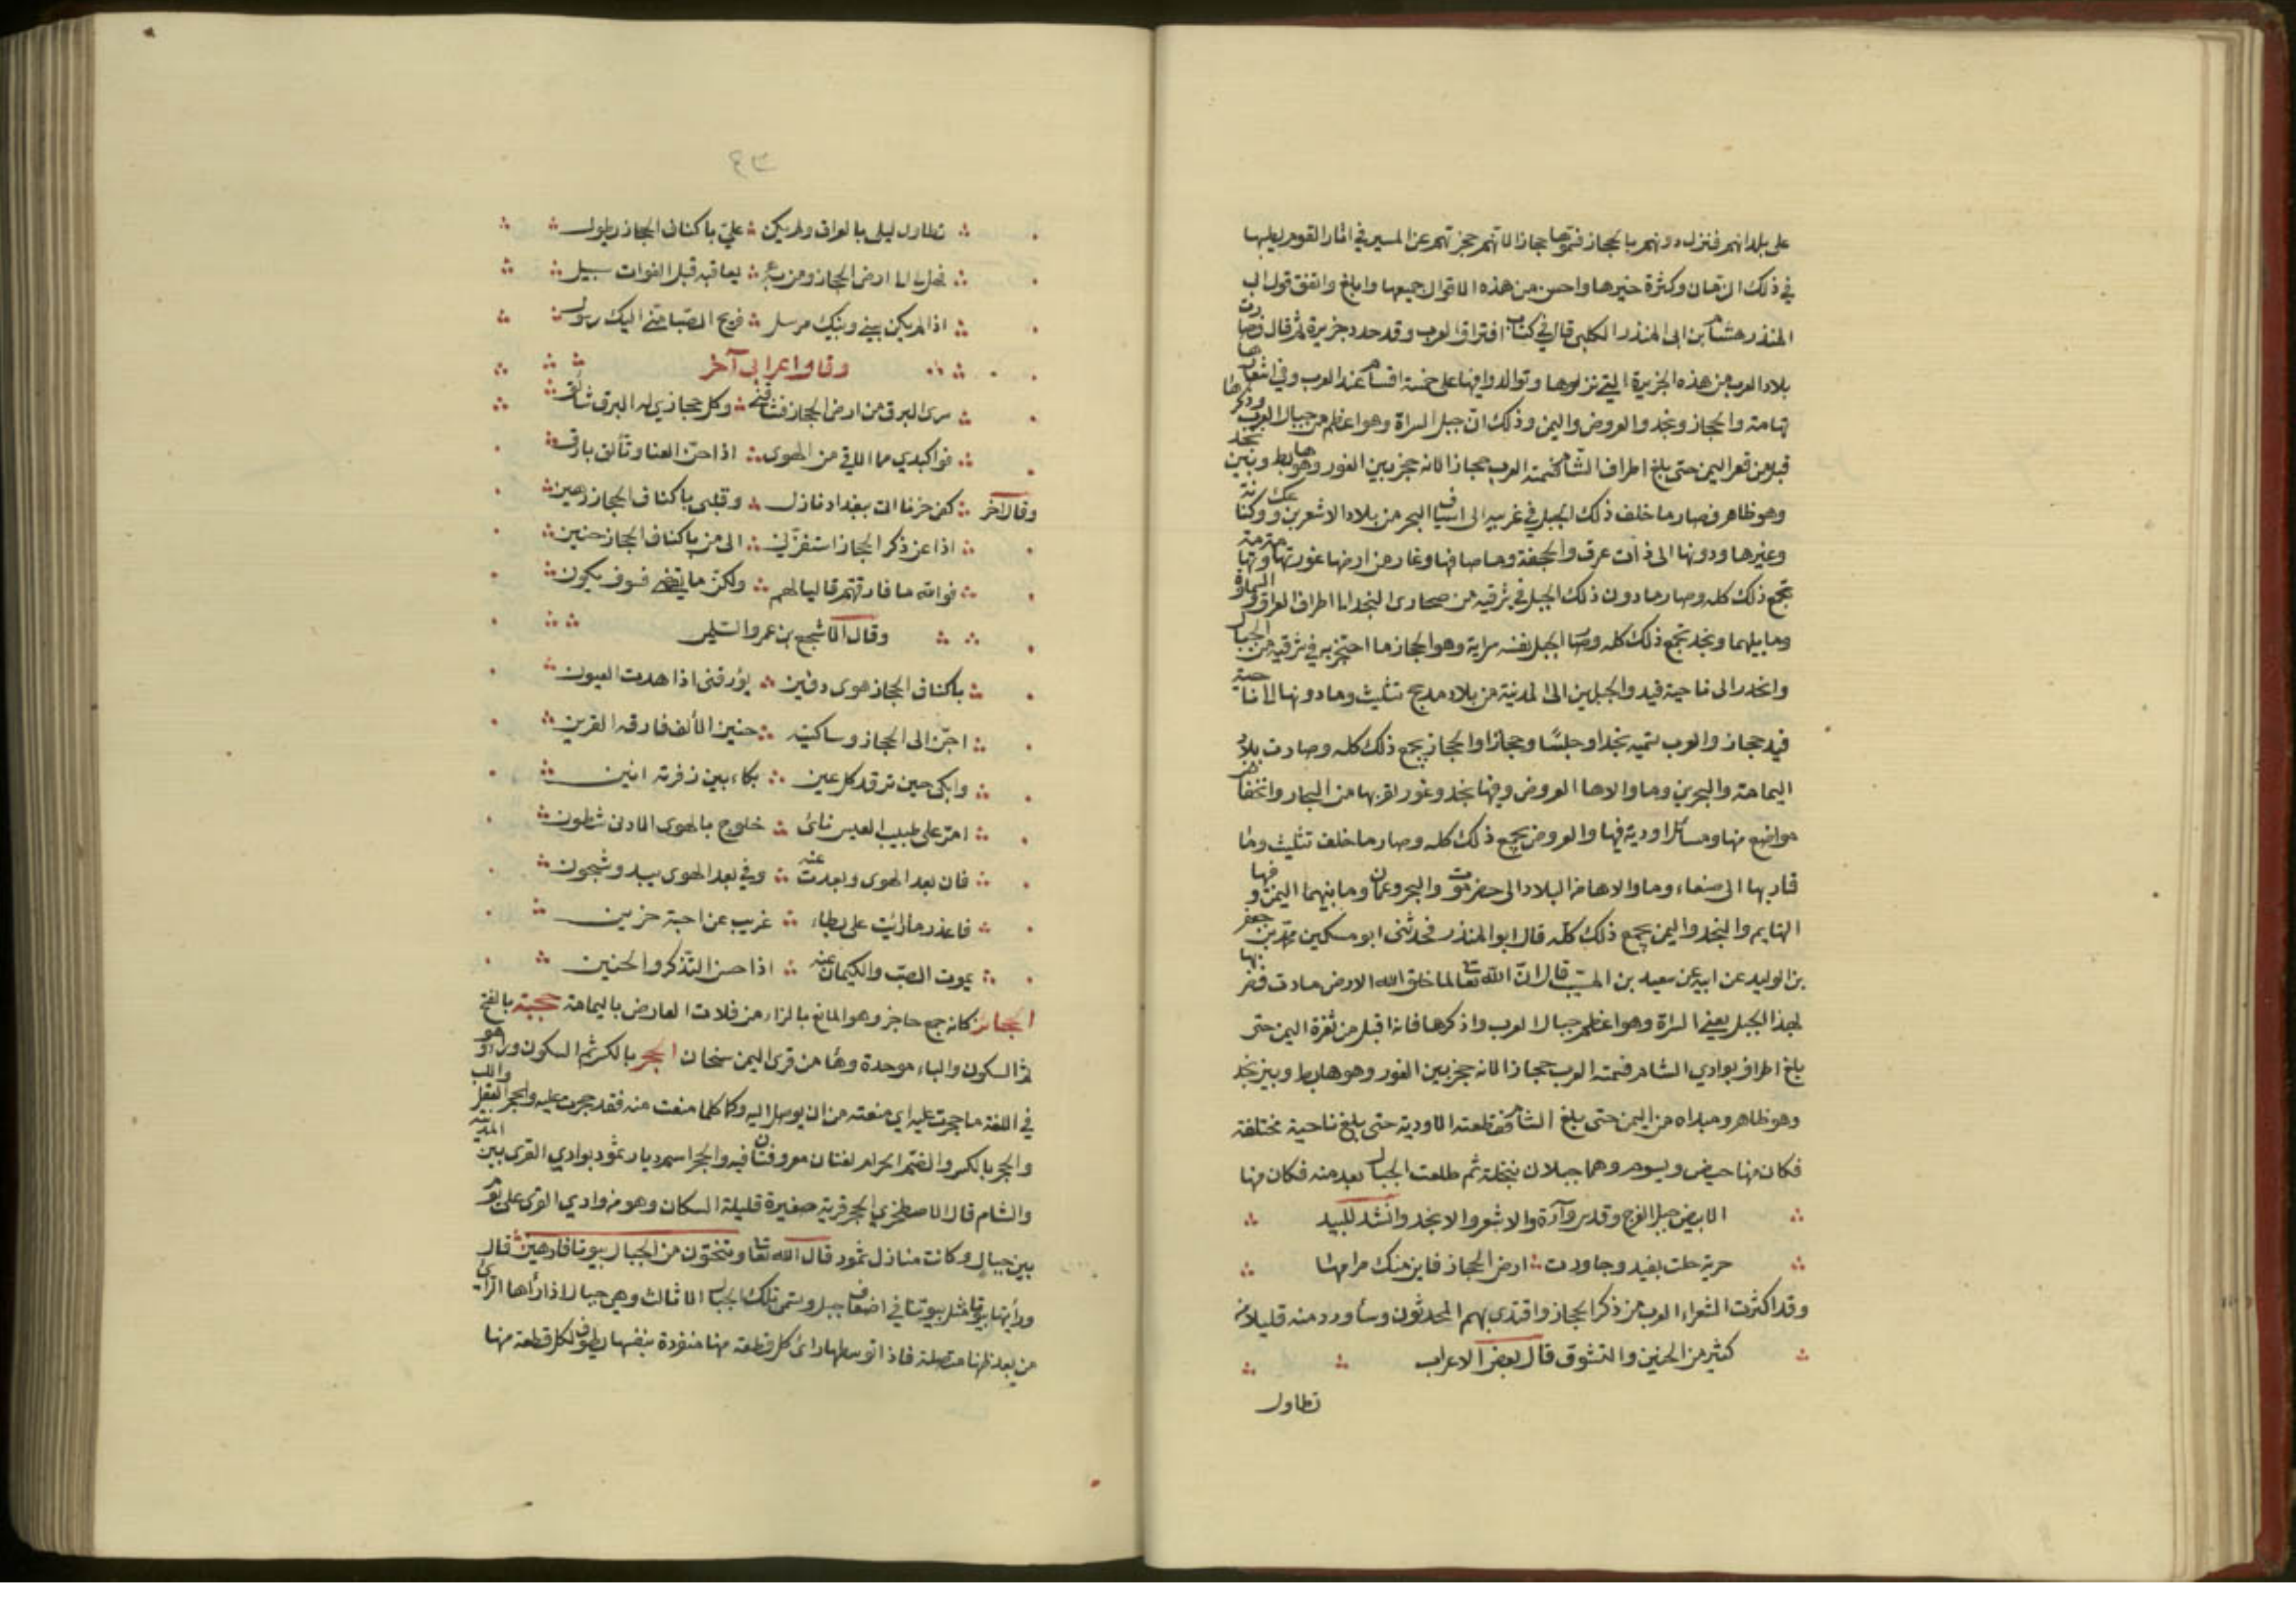 على بلدانهم فنزل دونهم بالحجاز فسموها حجازا لانهم حجزتهم عن المسير في اثار القوم لطيبها
في ذلك الزمان وكثرة خيرها واحسن من هذه الاقوال جميعها وابلغ واتقن قول ابي
المنذر هشام بن ابي المنذر الكلبي قال في كتاب افتراق العرب وقد حدد جزيرة ثم قال فصارت
بلاد العرب من هذه الجزيرة التي نزلوها وتوالدوا فيها على خمسة اقسام عند العرب وفي اشعارها
تهامة والحجاز ونجد والعروض واليمن وذلك ان جبل السراة وهو اعظم جبال العرب وذكرها
قبل من قعر اليمن حتى بلغ اطراف الشام فسمته العرب حجازا لانه حجز بين الغور وهو هابط وبين نجد
وهو ظاهر فصار ما خلف ذلك الجبل في غربيه الى اسياف البحر من بلاد الاشعرين وعك وكنانة
وغيرها ودونها الى ذات عرق والجحفة وما صاقبها وغار من ارضها غور تهامة وتهامة
تجمع ذلك كله وصار ما دون ذلك الجبل في شرقيه من صحارى النجد الى اطراف العراق والسماوة
وما يليهما ونجد تجمع ذلك كله وصار الجبل نفسه سراته وهو الحجاز وما احتجز به في شرقيه من الجبال
وانحدر الى ناحية فيد والجبلين الى المدينة من بلاد مذحج تثليث وما دونها الى ناحية
فيد حجاز والعرب تسميه نجدا وجلسا وحجازا والحجاز يجمع ذلك كله وصارت بلاد
اليمامة والبحرين وما والاها العروض وفيها نجد وغور لقربها من البحار وانخفاض
مواضع منها ومسائل اودية فيها والعروض يجمع ذلك كله وصار ما خلف تثليث وما
قاربها الى صنعاء وما والاها من البلاد الى حضرموت والبحر وعمان وما بينهما اليمن وفيها
التهايم والنجد واليمن يجمع ذلك كله قال ابو المنذر فحدثني ابو مسكين محمد بن جعفر
بن الوليد عن ابيه عن سعيد بن المسيب قال ان الله تعالى لما خلق الله الارض مادت فضربها
بهذا الجبل يعني السراة وهو اعظم جبال العرب واذكرها فانه اقبل من ثغرة اليمن حتى
بلغ اطراف بوادي الشام فسمته العرب حجازا لانه حجز بين الغور وهو هابط وبين نجد
وهو ظاهر ومبداه من اليمن حتى بلغ الشام فقطعته الاودية حتى بلغ ناحية مختلفة
فكان منها حيض ويسوم وهما جبلان بنخلة ثم طلعت الجبال بعد منه فكان منها
الابيض جبل العرج وقدس وآرة والاشعر والاجرد وانشد للبيد
مرية حلت بفيد وجاورت ارض الحجاز فاين منك مرامها
وقد اكثرت الشعراء العرب من ذكر الحجاز واقتدى بهم المحدثون وسأورد منه قليلا من
كثير من الحنين والتشوق قال بعض الاعراب
تطاول
٤٣
تطاول ليلي بالعراق ولم يكن علي باكناف الحجاز يطول
فهل لي الى ارض الحجاز ومن به بعاقبة قبل الفوات سبيل
اذا لم يكن بيني وبينك مرسل فريح الصبا مني اليك رسول
وقال اعرابي آخر
سرى البرق من ارض الحجاز فشاقني وكل حجازي له البرق شائق
فواكبدي مما الاقي من الهوى اذا حن الف او تألق بارق
وقال آخر كفى حزنا اني ببغداد نازل وقلبي باكناف الحجاز رهين
اذا عن ذكر الحجاز استفزني الى من باكناف الحجاز حنين
فوالله ما فارقتهم قاليا لهم ولكن ما يقضى فسوف يكون
وقال الاشجع بن عمرو السلمي
باكناف الحجاز هوى دفين يؤرقني اذا هدت العيون
احن الى الحجاز وساكنيه حنين الألف فارقه القرين
وابكي حين ترقد كل عين بكاء بين زفرته انين
امر على طبيب العيس نائ خلوج بالهوى الادنى شطون
فان بعد الهوى وبعدت عنه وفي بعد الهوى يبدو شجون
فاعذر ما رأيت على بكاء غريب عن احبة حزين
يموت الصب والكتمان عنه اذا حسن التذكر والحنين
الحجائز كانه جمع حاجز وهو المانع بالزاء من فلات العارض باليمامة حجبة بالفتح
ثم السكون والباء موحدة وهاء من قرى اليمن سنحان الحجر بالكسر ثم السكون وراء وهو
في اللغة ما حجرت عليه اي منعته من ان يوصل اليه وكل ما منعت منه فقد حجرت عليه والحجر العقل واللب
والحجر بالكسر والضم الحرام لغتان معروفتان فيه والحجر اسم ديار ثمود بوادي القرى بين المدينة
والشام قال الاصطخري الحجر قرية صغيرة قليلة السكان وهو من وادي القرى على يوم
بين جبال وكانت منازل ثمود قال الله تعالى وتنحتون من الجبال بيوتا فارهين قال
ورأيتها بيوتا مثل بيوتنا في اضعاف جبل وتسمى تلك الجبال الاثالث وهي جبال اذا رأها الرائي
من بعد ظنها متصلة فاذا توسطها رأى كل قطعة منها منفردة بنفسها يطوف لكل قطعة منها